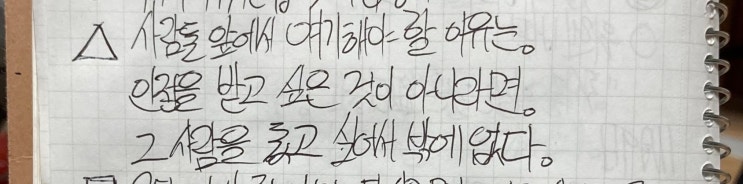 △ 사람들 앞에서 얘기해야 할 이유는.
인정을 받고 싶은 것이 아니라면.
그 사람을 돕고 싶어서 밖에 없다.